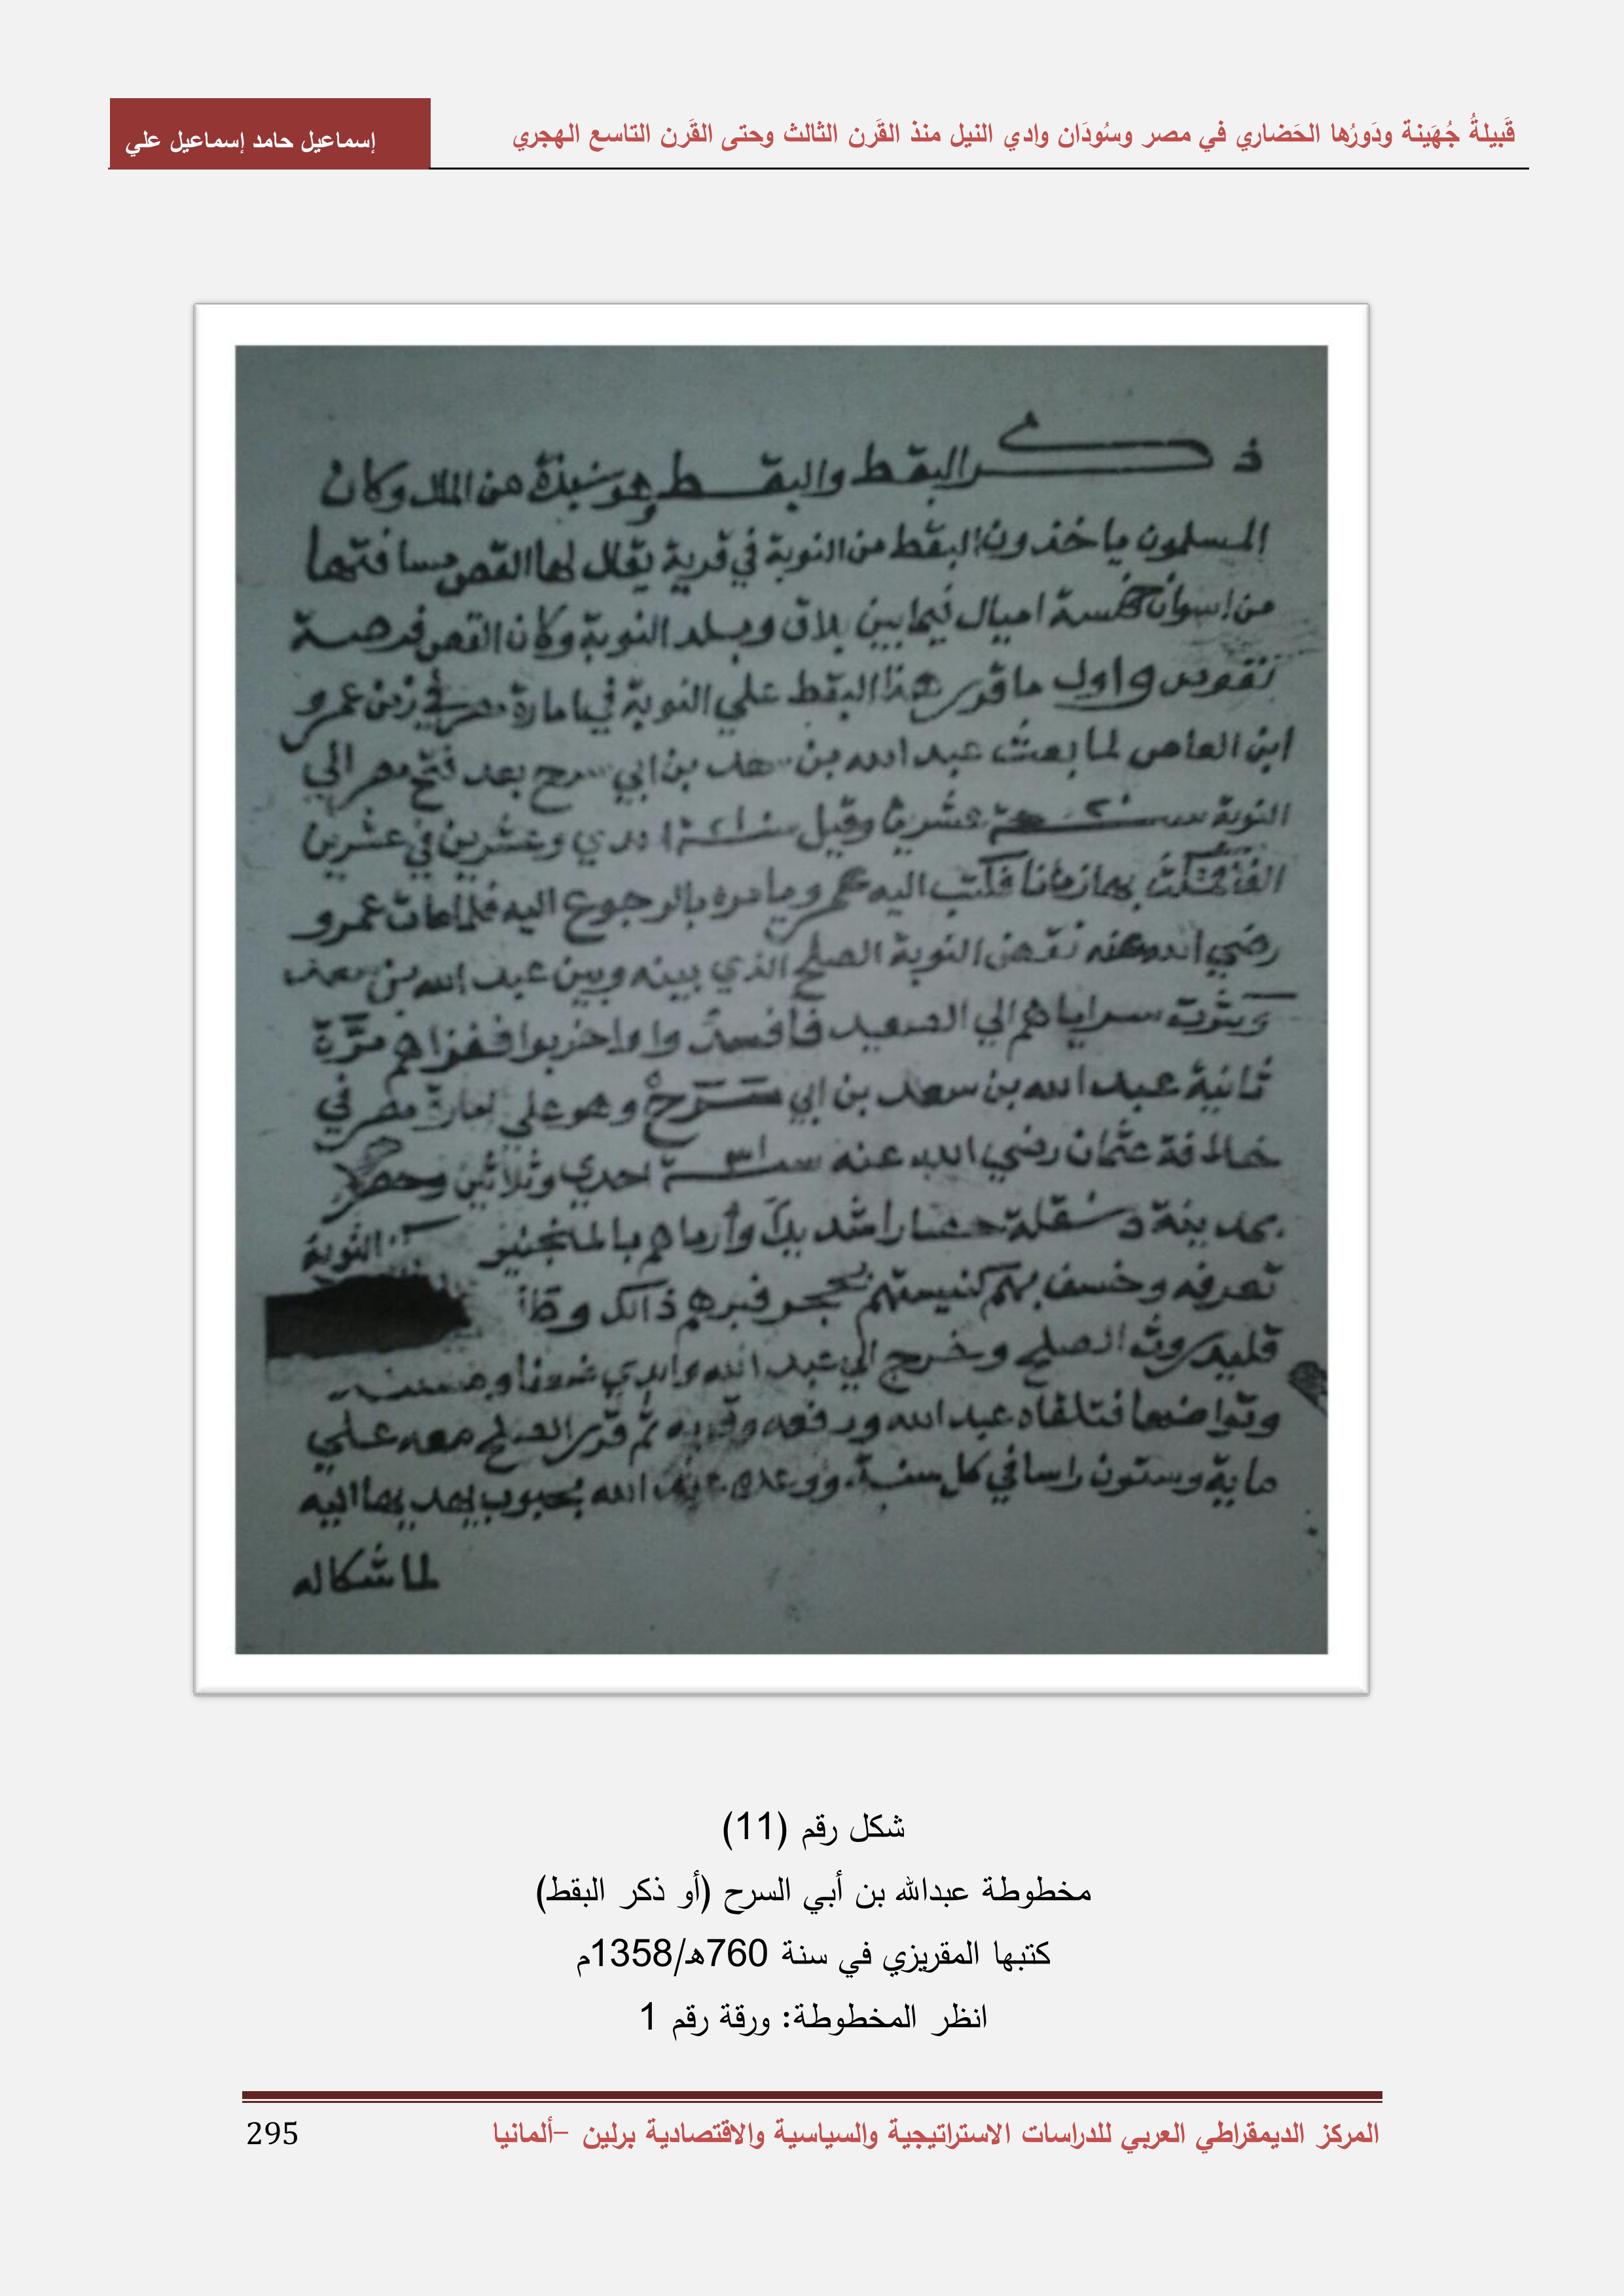 قَبيلةُ جُهَينة ودَورُها الحَضاري في مصر وسُودَان وادي النيل منذ القَرن الثالث وحتى القَرن التاسع الهجري
إسماعيل حامد إسماعيل علي
ذكر البقط والبقط هو من المال وكان
المسلمون ياخذون البقط من النوبة في قرية يقال لها القص مسافتها
من اسوان خمسة اميال فيما بين بلاق وبلد النوبة وكان القص فرصة
لقوص واول ما قرر هذا البقط علي النوبة في امارة عمرو
ابن العاص لما بعث عبد الله بن سعد بن ابي سرح بعد فتح مصر الي
النوبة سنة عشرين وقيل سنة احدي وعشرين في عشرين
الفا فمكث بها زمانا فكتب اليه عمرو يامره بالرجوع اليه فلما مات عمرو
رضي الله عنه نقض النوبة الصلح الذي بينه وبين عبد الله بن سعد
وكثرت سراياهم الي الصعيد فافسدوا واخربوا فغزاهم مرّة
ثانية عبد الله بن سعد بن ابي سَرَحْ وهو علي امارة مصر في
خلافة عثمان رضي الله عنه سنة احدي وثلاثين وحصر
بمدينة دنقلة حصارا شديدا وأرماهم بالمنجنيق النوبة
تعرفه وخسف بهم كنيستهم بحجر فبهرهم ذالك
الصلح وخرج الي عبد الله وابدي
وتواضعا فتلقاه عبد الله ورفعه وقربه ثم قرر الصلح معه علي
ماية وستون راسا في كل سنة ووعده عبد الله بحبوب يهديها اليه
لما شكا له
شكل رقم (11)
مخطوطة عبدالله بن أبي السرح (أو ذكر البقط)
كتبها المقريزي في سنة 760هـ/1358م
انظر المخطوطة: ورقة رقم 1
المركز الديمقراطي العربي للدراسات الاستراتيجية والسياسية والاقتصادية برلين –ألمانيا
295